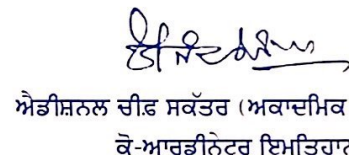 ਐਡੀਸ਼ਨਲ ਚੀਫ਼ ਸਕੱਤਰ (ਅਕਾਦਮਿਕ
ਕੋ-ਆਰਡੀਨੇਟਰ ਇਮਤਿਹਾਨ